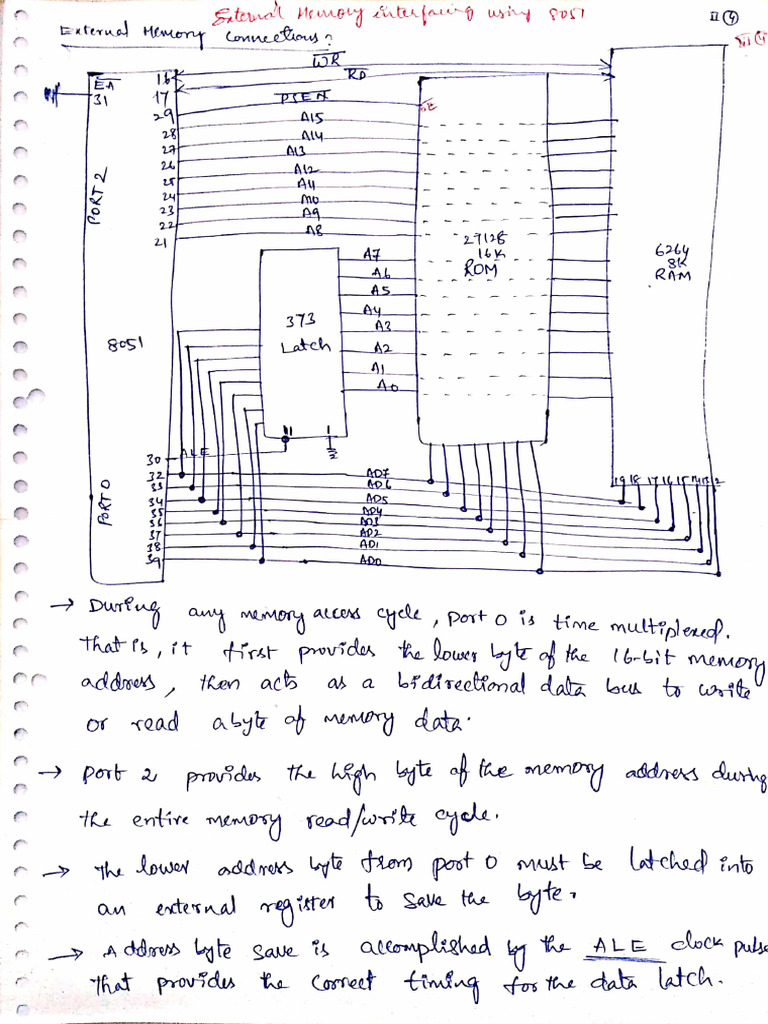 External Memory interfacing using 8051
II 4
External Memory Connections:
WR
RD
EA
31
16
17
29
PSEN
28
A15
27
A14
26
A13
25
A12
24
A11
23
A10
22
A9
21
A8
PORT 2
8051
PORT 0
373
Latch
A7
A6
A5
A4
A3
A2
A1
A0
27128
16K
ROM
6264
8K
RAM
11
1
30
ALE
32
AD7
33
AD6
34
AD5
35
AD4
36
AD3
37
AD2
38
AD1
39
AD0
19 18 17 16 15 14 13 12
→ During any memory access cycle, port 0 is time multiplexed.
That is, it first provides the lower byte of the 16-bit memory
address, then acts as a bidirectional data bus to write
or read a byte of memory data.
→ port 2 provides the high byte of the memory address during
the entire memory read/write cycle.
→ The lower address byte from port 0 must be latched into
an external register to save the byte.
→ Address byte save is accomplished by the ALE clock pulse
That provides the correct timing for the data latch.